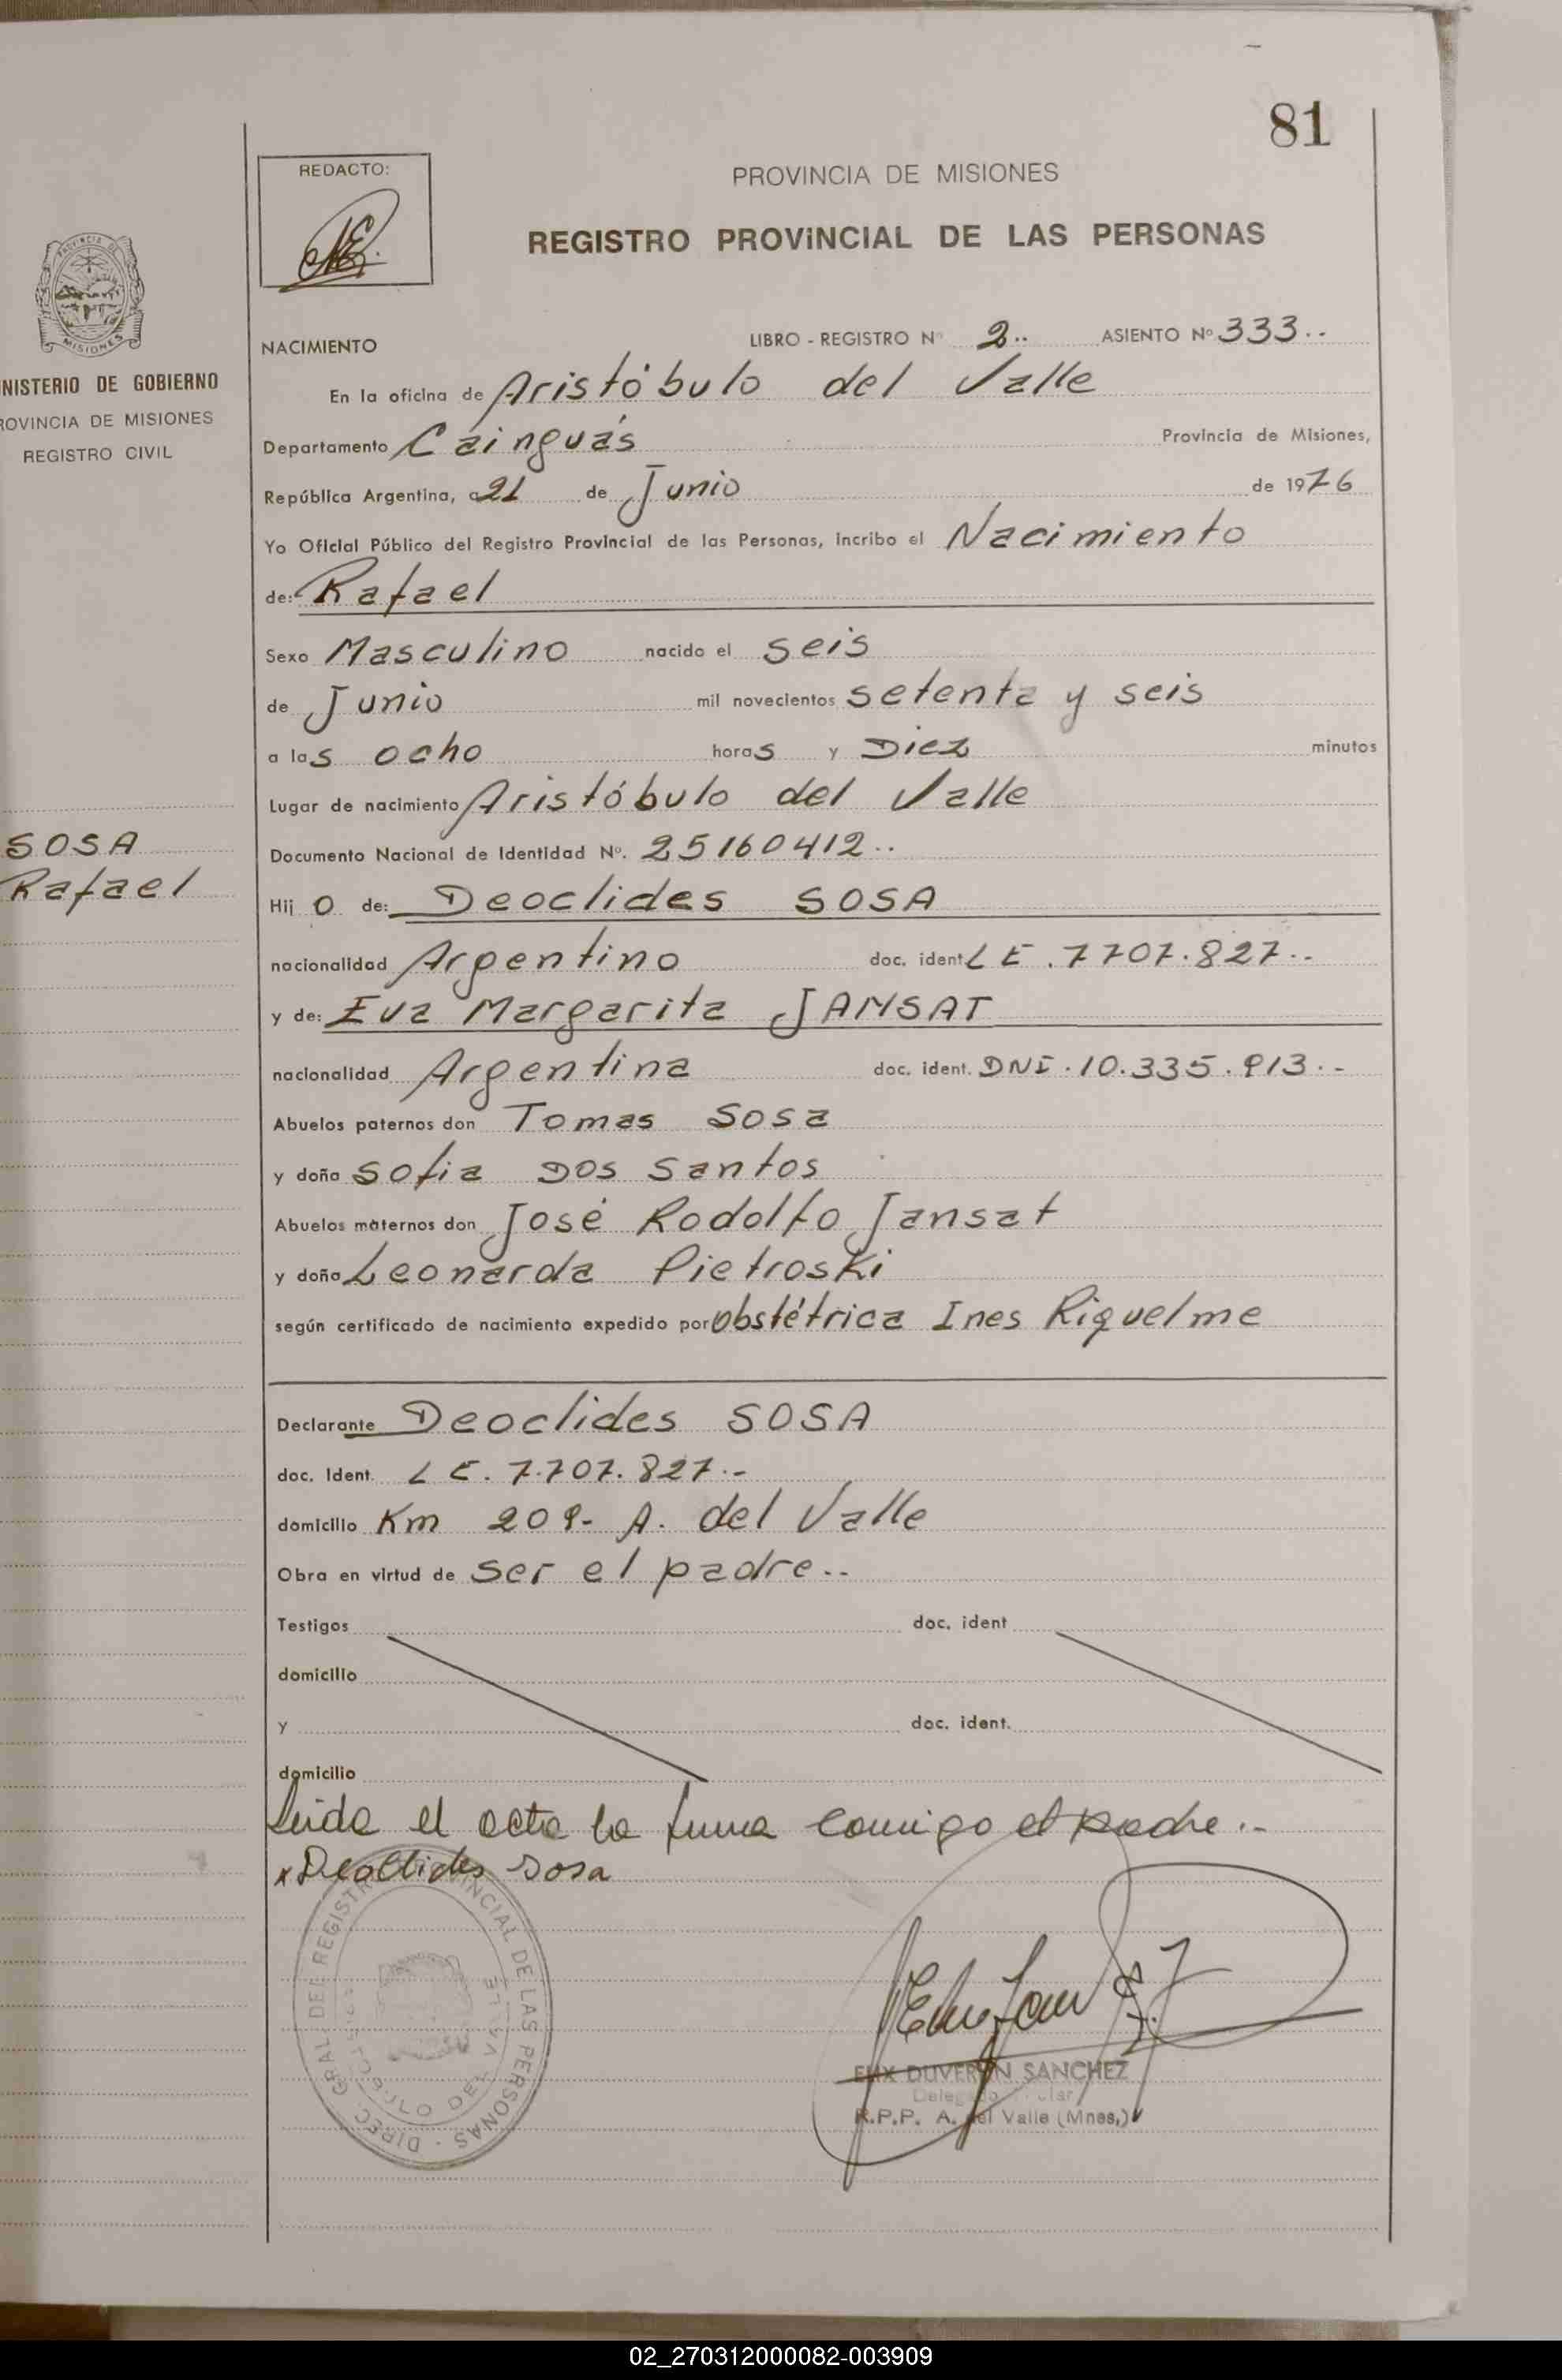 81
REDACTO:
PROVINCIA DE MISIONES
REGISTRO PROVINCIAL DE LAS PERSONAS
MISIONES
NISTERIO DE GOBIERNO
ROVINCIA DE MISIONES
REGISTRO CIVIL
SOSA
Rafael
NACIMIENTO LIBRO - REGISTRO Nº 2.. ASIENTO Nº 333..
En la oficina de Aristóbulo del Valle
Departamento Cainguás Provincia de Misiones,
República Argentina, a 21 de Junio de 1976
Yo Oficial Público del Registro Provincial de las Personas, incribo el Nacimiento
de:- Rafael
Sexo Masculino nacido el seis
de Junio mil novecientos setenta y seis
a las ocho horas y Diez minutos
Lugar de nacimiento Aristóbulo del Valle
Documento Nacional de Identidad Nº. 25160412..
Hijo de: Deoclides SOSA
nacionalidad Argentino doc. ident LE. 7707.827..
y de: Eva Margarita JANSAT
nacionalidad Argentina doc. ident. DNI. 10.335.913.-
Abuelos paternos don Tomas Sosa
y doña Sofia Dos Santos
Abuelos maternos don José Rodolfo Jansat
y doña Leonarda Pietroski
según certificado de nacimiento expedido por obstétrica Ines Riquelme
Declarante Deoclides SOSA
doc. Ident. LE. 7.707.827.-
domicilio Km 209- A. del Valle
Obra en virtud de ser el padre..
Testigos doc. ident
domicilio
y doc. ident.
domicilio
Leida el acta la firma comigo el padre.-
x Deoclides Sosa
DIREC. GRAL. DEL REGISTRO PROVINCIAL DE LAS PERSONAS
ARISTOBULO DEL VALLE
DUVERÓN SANCHEZ
R.P.P. A. del Valle (Mnes.)
02_270312000082-003909